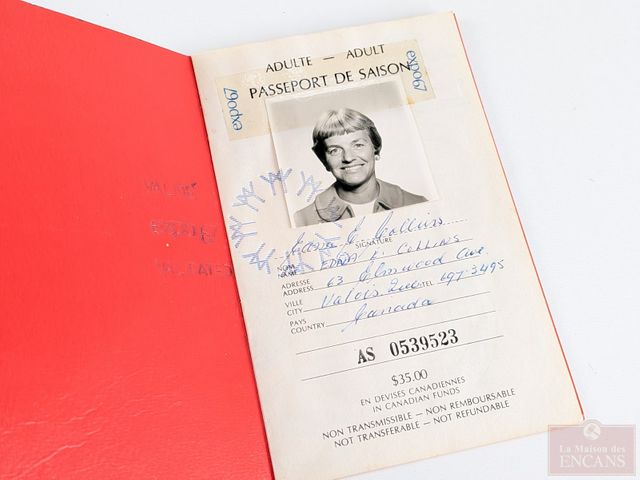 ADULTE — ADULT
PASSEPORT DE SAISON
expo67
expo67
SIGNATURE
NOM
NAME
EDNA E. COLLINS
ADRESSE
ADDRESS
63 Elmwood Ave
VILLE
CITY
Valois Que TEL. 697-3495
PAYS
COUNTRY
Canada
AS 0539523
$35.00
EN DEVISES CANADIENNES
IN CANADIAN FUNDS
NON TRANSMISSIBLE — NON REMBOURSABLE
NOT TRANSFERABLE — NOT REFUNDABLE
La Maison des
ENCANS